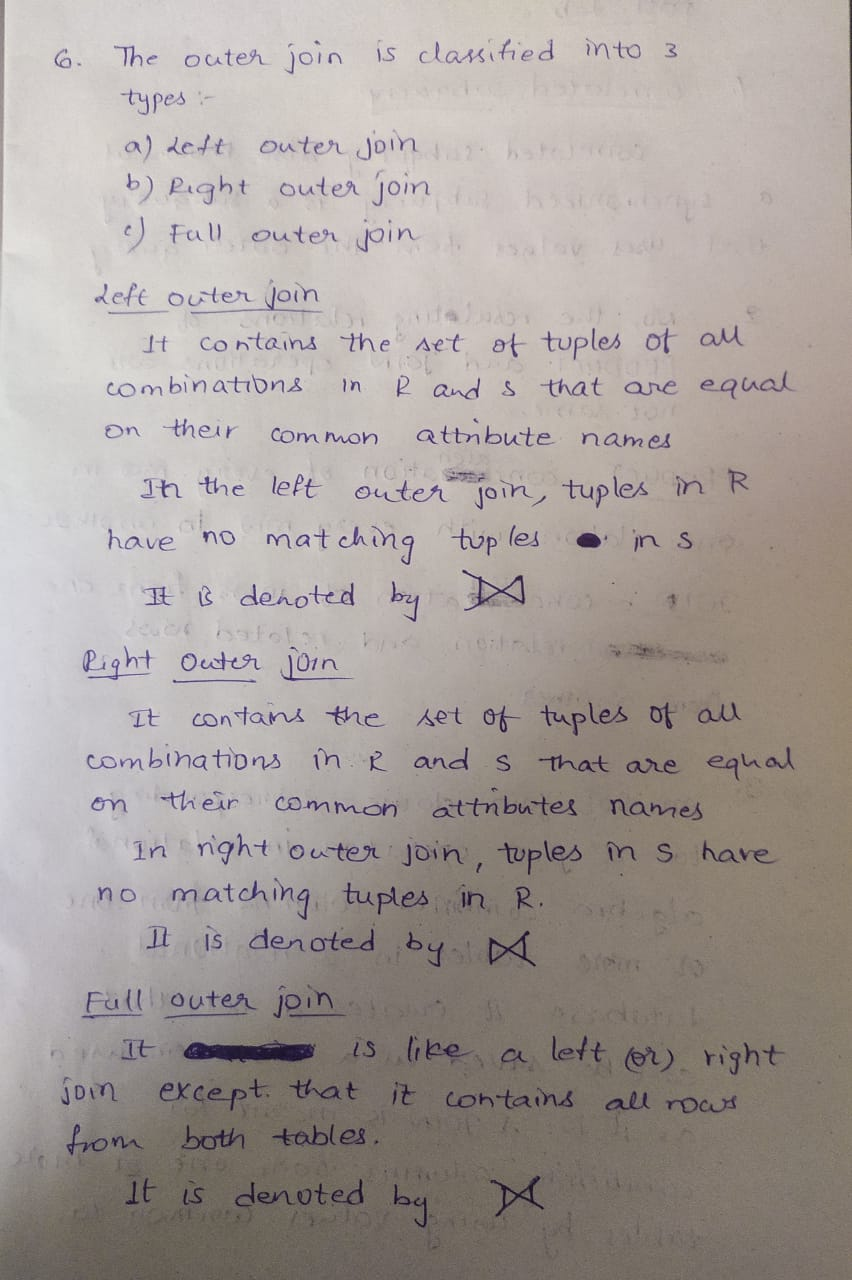 6. The outer join is classified into 3
types :-
a) Left outer join
b) Right outer join
c) Full outer join
Left outer join
It contains the set of tuples of all
combinations in R and S that are equal
on their common attribute names
In the left outer join, tuples in R
have no matching tuples in S
It is denoted by ⟕
Right outer join
It contains the set of tuples of all
combinations in R and S that are equal
on their common attributes names
In right outer join, tuples in S have
no matching tuples in R.
It is denoted by ⋈
Full outer join
It is like a left (or) right
join except. that it contains all rows
from both tables.
It is denoted by ⋈